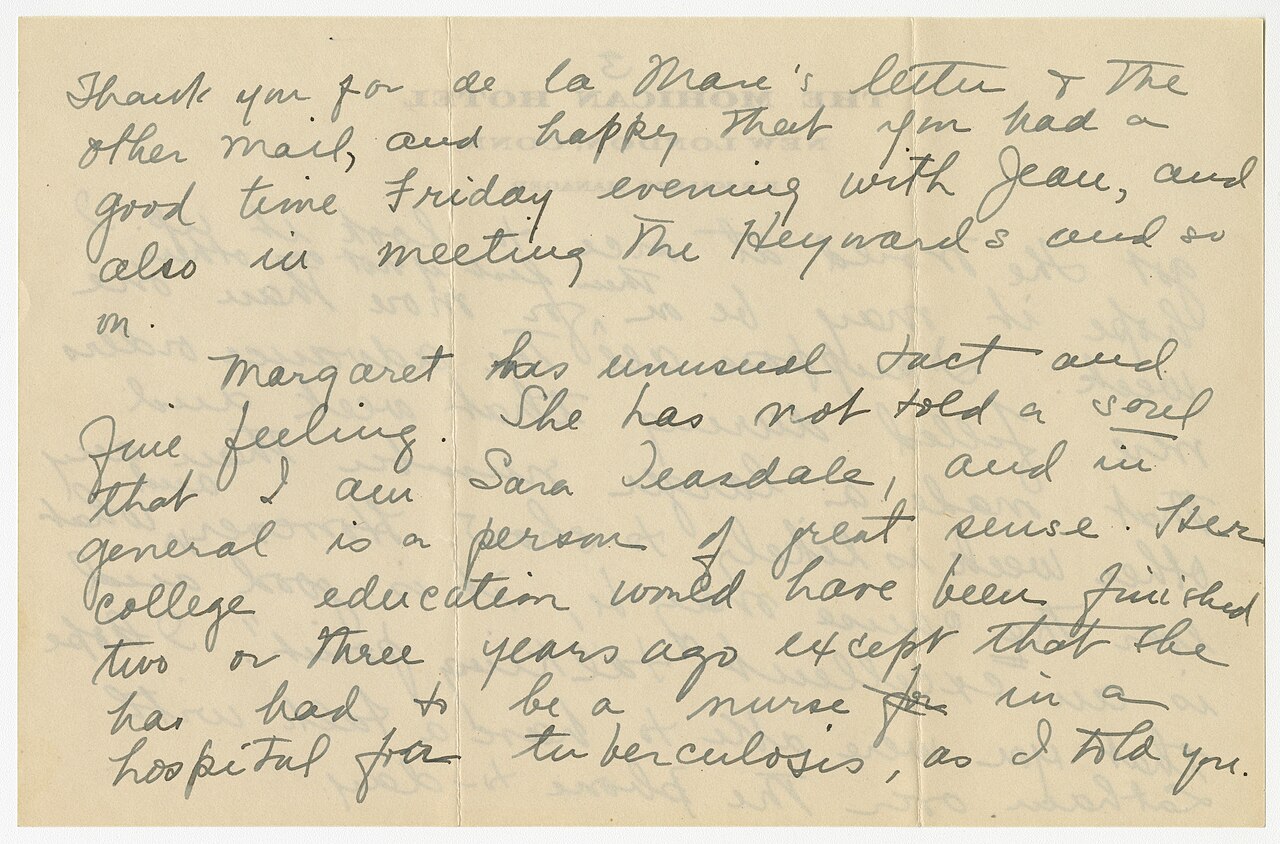 Thank you for de la Mare's letter & the
other mail, and happy that you had a
good time Friday evening with Jean, and
also in meeting the Heywards and so
on.
Margaret has unusual tact and
fine feeling. She has not told a soul
that I am Sara Teasdale, and in
general is a person of great sense. Her
college education would have been finished
two or three years ago except that she
has had to be a nurse for in a
hospital for tuberculosis, as I told you.